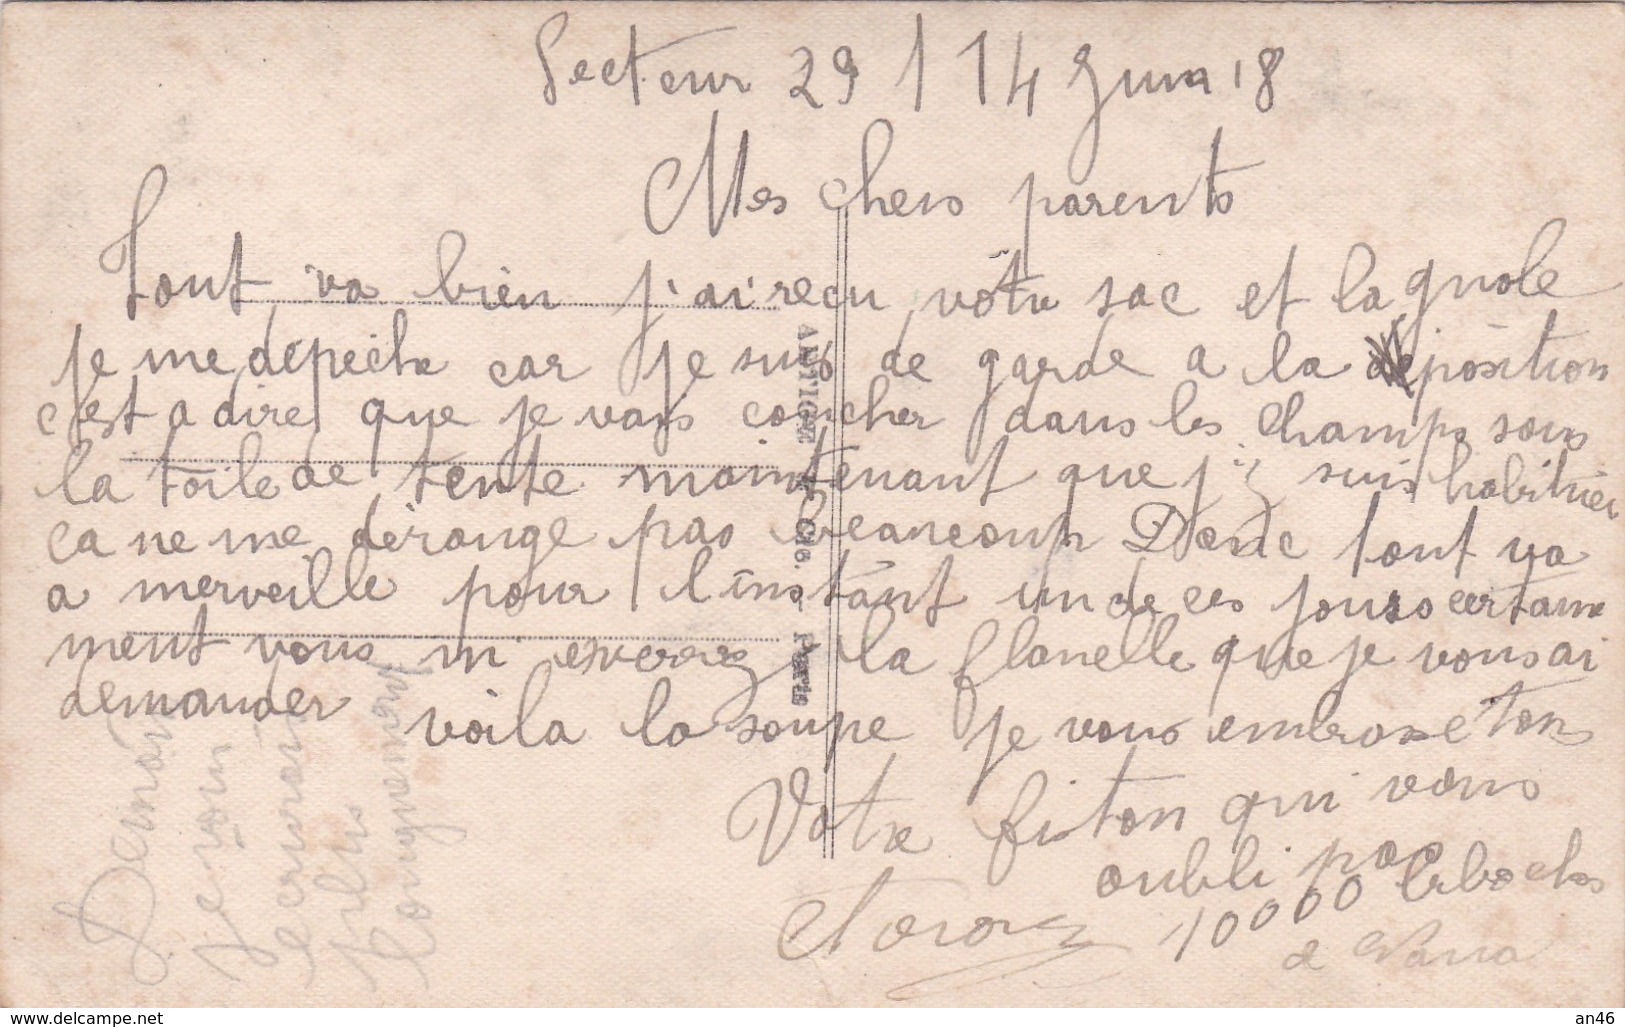 Secteur 29 / 14 Juin 18
Mes chers parents
Tout va bien j'ai recu vôtre sac et la gnole
je me dépéche car je suis de garde a la position
c'est a dire que je vais coucher dans les champs sous
la toile de tente maintenant que j'y suis habituer
ca ne me dérange pas beaucoup Donc tout va
a merveille pour l'instant un de ces jours certaine
ment vous m'enverrez la flanelle que je vous ai
demander voila la soupe je vous embrasse tous
Votre fiston qui vous
oubli pas
10000 bboches
a Nana
Demain
Je vous
ecrirais
plus
longuement
ANTIGNY & Cie. - Paris
www.delcampe.net
an46